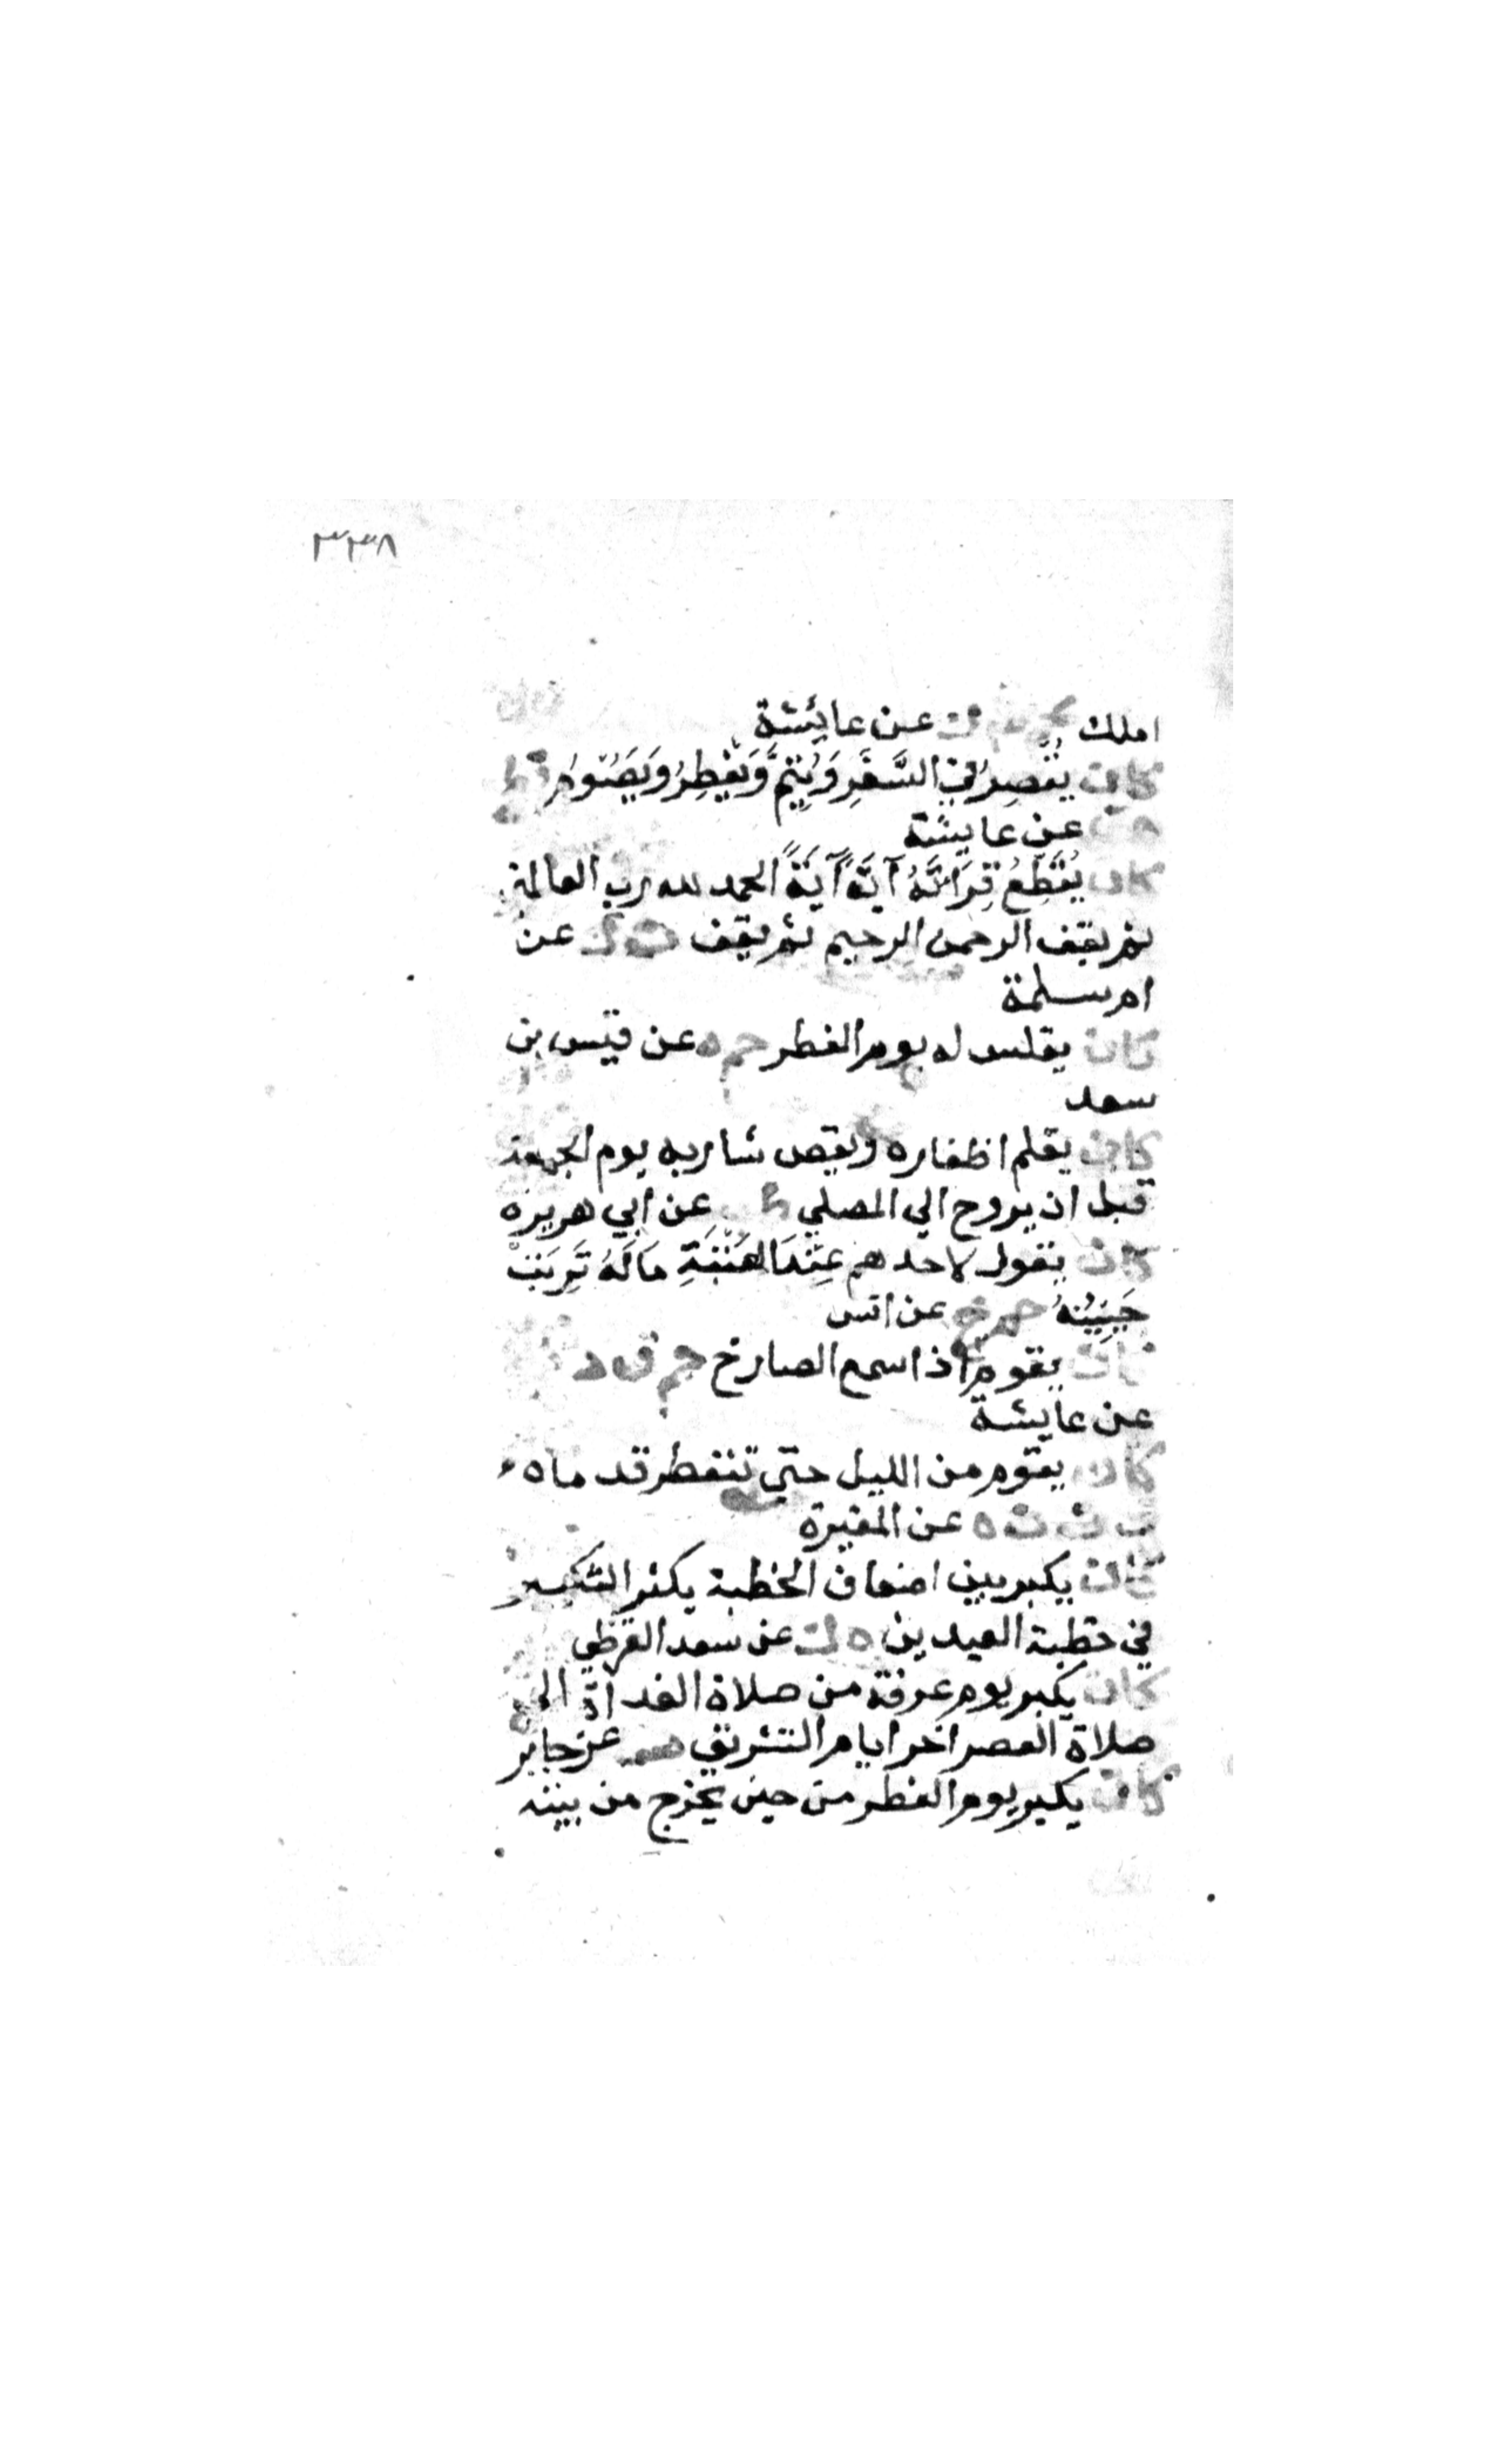 ٣٣٨
املك عن عايئشة
كان يُقْصِرُ في السَّفَرِ وَيُتِمُّ وَيَفْطِرُ وَيَصُومُ قط
هق عن عايشة
كان يُقَطِّعُ قِرَائَتَهُ آيَةً آيَةً الحمد لله رب العالمين
ثم يقف الرحمن الرحيم ثم يقف ت ك عن
ام سلمة
كان يقلس له يوم الفطر حم ه عن قيس بن
سعد
كان يقلم اظفاره ويقص شاربه يوم الجمعة
قبل ان يروح الي المصلي عن ابي هريرة
كان يقول لاحدهم عِنْدَ المَعْتَبَةِ مَا لَهُ تَرِبَتْ
جَبِيْنُهُ حم خ عن انس
كان يقوم اذا سمع الصارخ حم ق د
عن عايشة
كان يقوم من الليل حتي تنفطر قدماه
ق ت ن ه عن المغيرة
كان يكبر بين اضعاف الخطبة يكثر التكبير
في خطبة العيدين ه ك عن سعد القرظي
كان يكبر يوم عرفة من صلاة الغداة الي
صلاة العصر آخر ايام التشريق هق عن جابر
كان يكبر يوم الفطر من حين يخرج من بيته